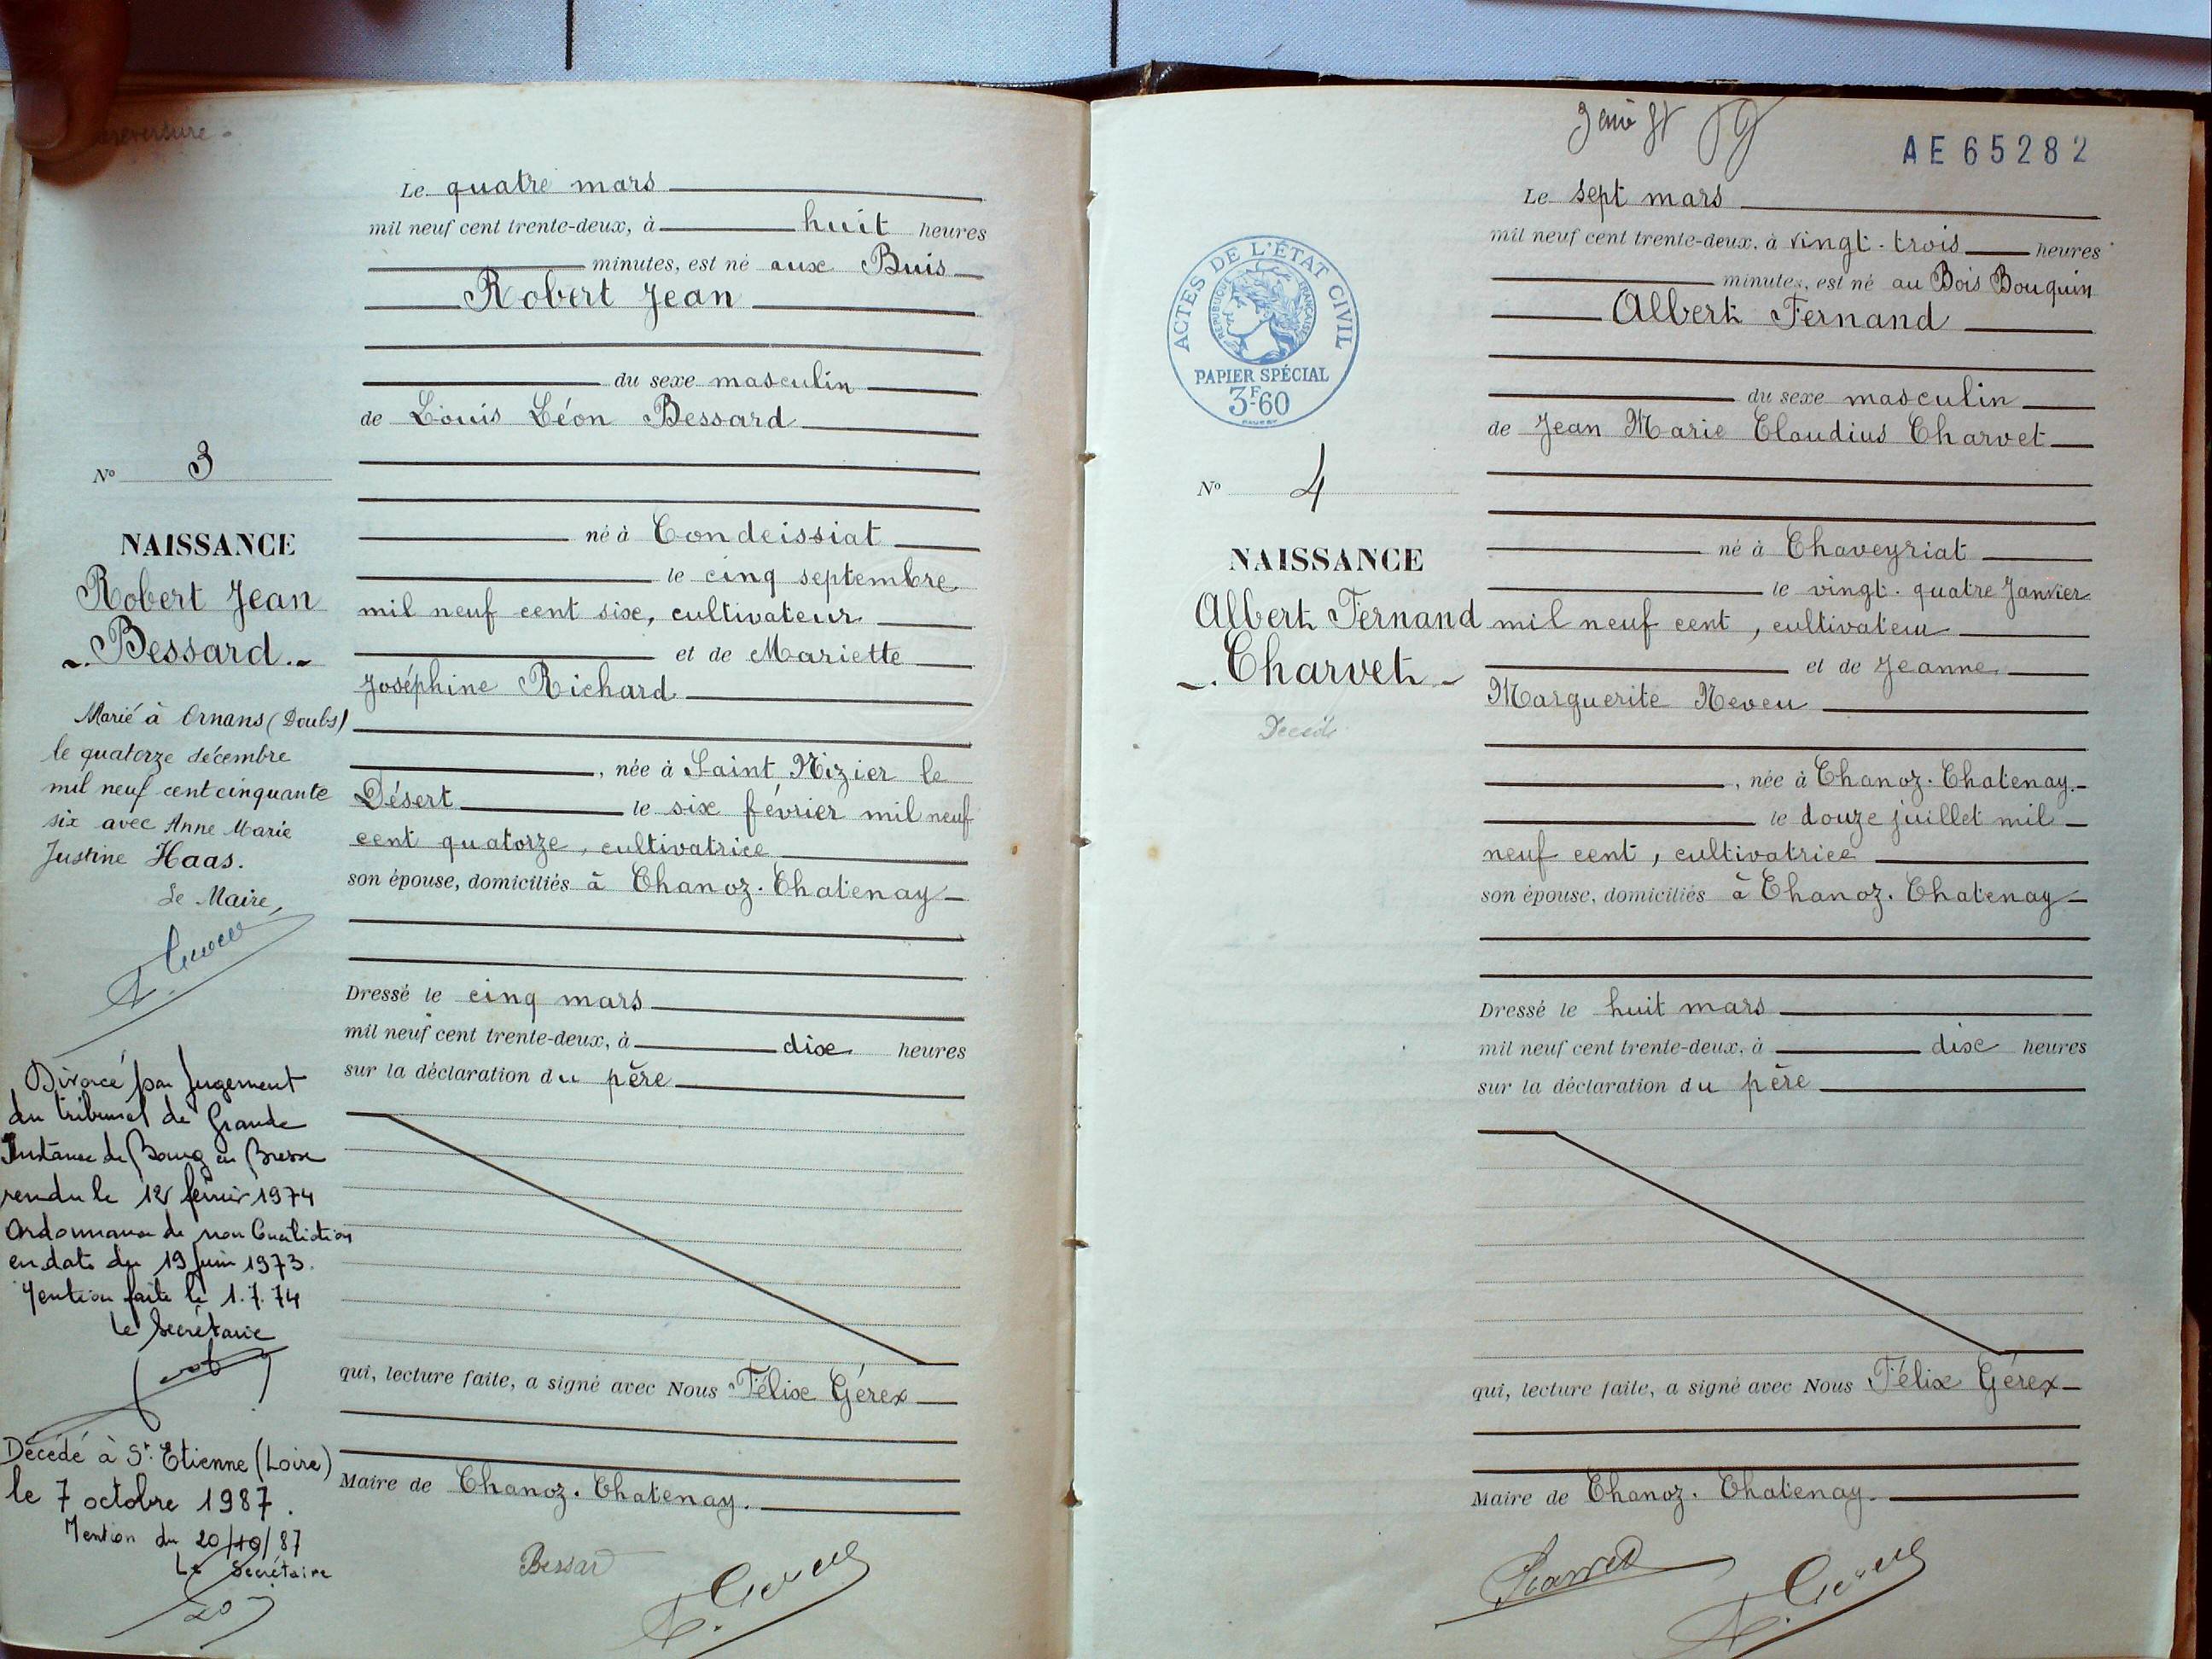 Le quatre mars
mil neuf cent trente-deux, à huit heures
minutes, est né aux Buis
Robert Jean
du sexe masculin
de Louis Léon Bessard
né à Condeissiat
le cinq septembre
mil neuf cent six, cultivateur
et de Mariette
Joséphine Richard
, née à Saint Nizier le
Désert le six février mil neuf
cent quatorze, cultivatrice
son épouse, domiciliés à Chanoz-Chatenay
Dressé le cinq mars
mil neuf cent trente-deux, à dix heures
sur la déclaration du père
qui, lecture faite, a signé avec Nous Félix Gérex
Maire de Chanoz-Chatenay.
Bessard
N° 3
NAISSANCE
Robert Jean
Bessard
Marié à Ornans (Doubs)
le quatorze décembre
mil neuf cent cinquante
six avec Anne Marie
Justine Haas.
Le Maire,
Divorcé par Jugement
du tribunal de Grande
Instance de Bourg en Bresse
rendu le 12 février 1974
Ordonnance de non Conciliation
en date du 19 Juin 1973.
Mention faite le 1.7.74
Le Secrétaire
Décédé à St Etienne (Loire)
le 7 octobre 1987.
Mention du 20/10/87
Le Secrétaire
AE65282
Le sept mars
mil neuf cent trente-deux, à vingt-trois heures
minutes, est né au Bois Bouquin
Albert Fernand
du sexe masculin
de Jean Marie Claudius Charvet
né à Chaveyriat
le vingt-quatre Janvier
mil neuf cent, cultivateur
et de Jeanne
Marguerite Neveu
, née à Chanoz-Chatenay
le douze juillet mil
neuf cent, cultivatrice
son épouse, domiciliés à Chanoz-Chatenay
Dressé le huit mars
mil neuf cent trente-deux, à dix heures
sur la déclaration du père
qui, lecture faite, a signé avec Nous Félix Gérex
Maire de Chanoz-Chatenay.
Charvet
ACTES DE L'ÉTAT CIVIL
RÉPUBLIQUE FRANÇAISE
PAPIER SPÉCIAL
3F-60
N° 4
NAISSANCE
Albert Fernand
Charvet
Décédé